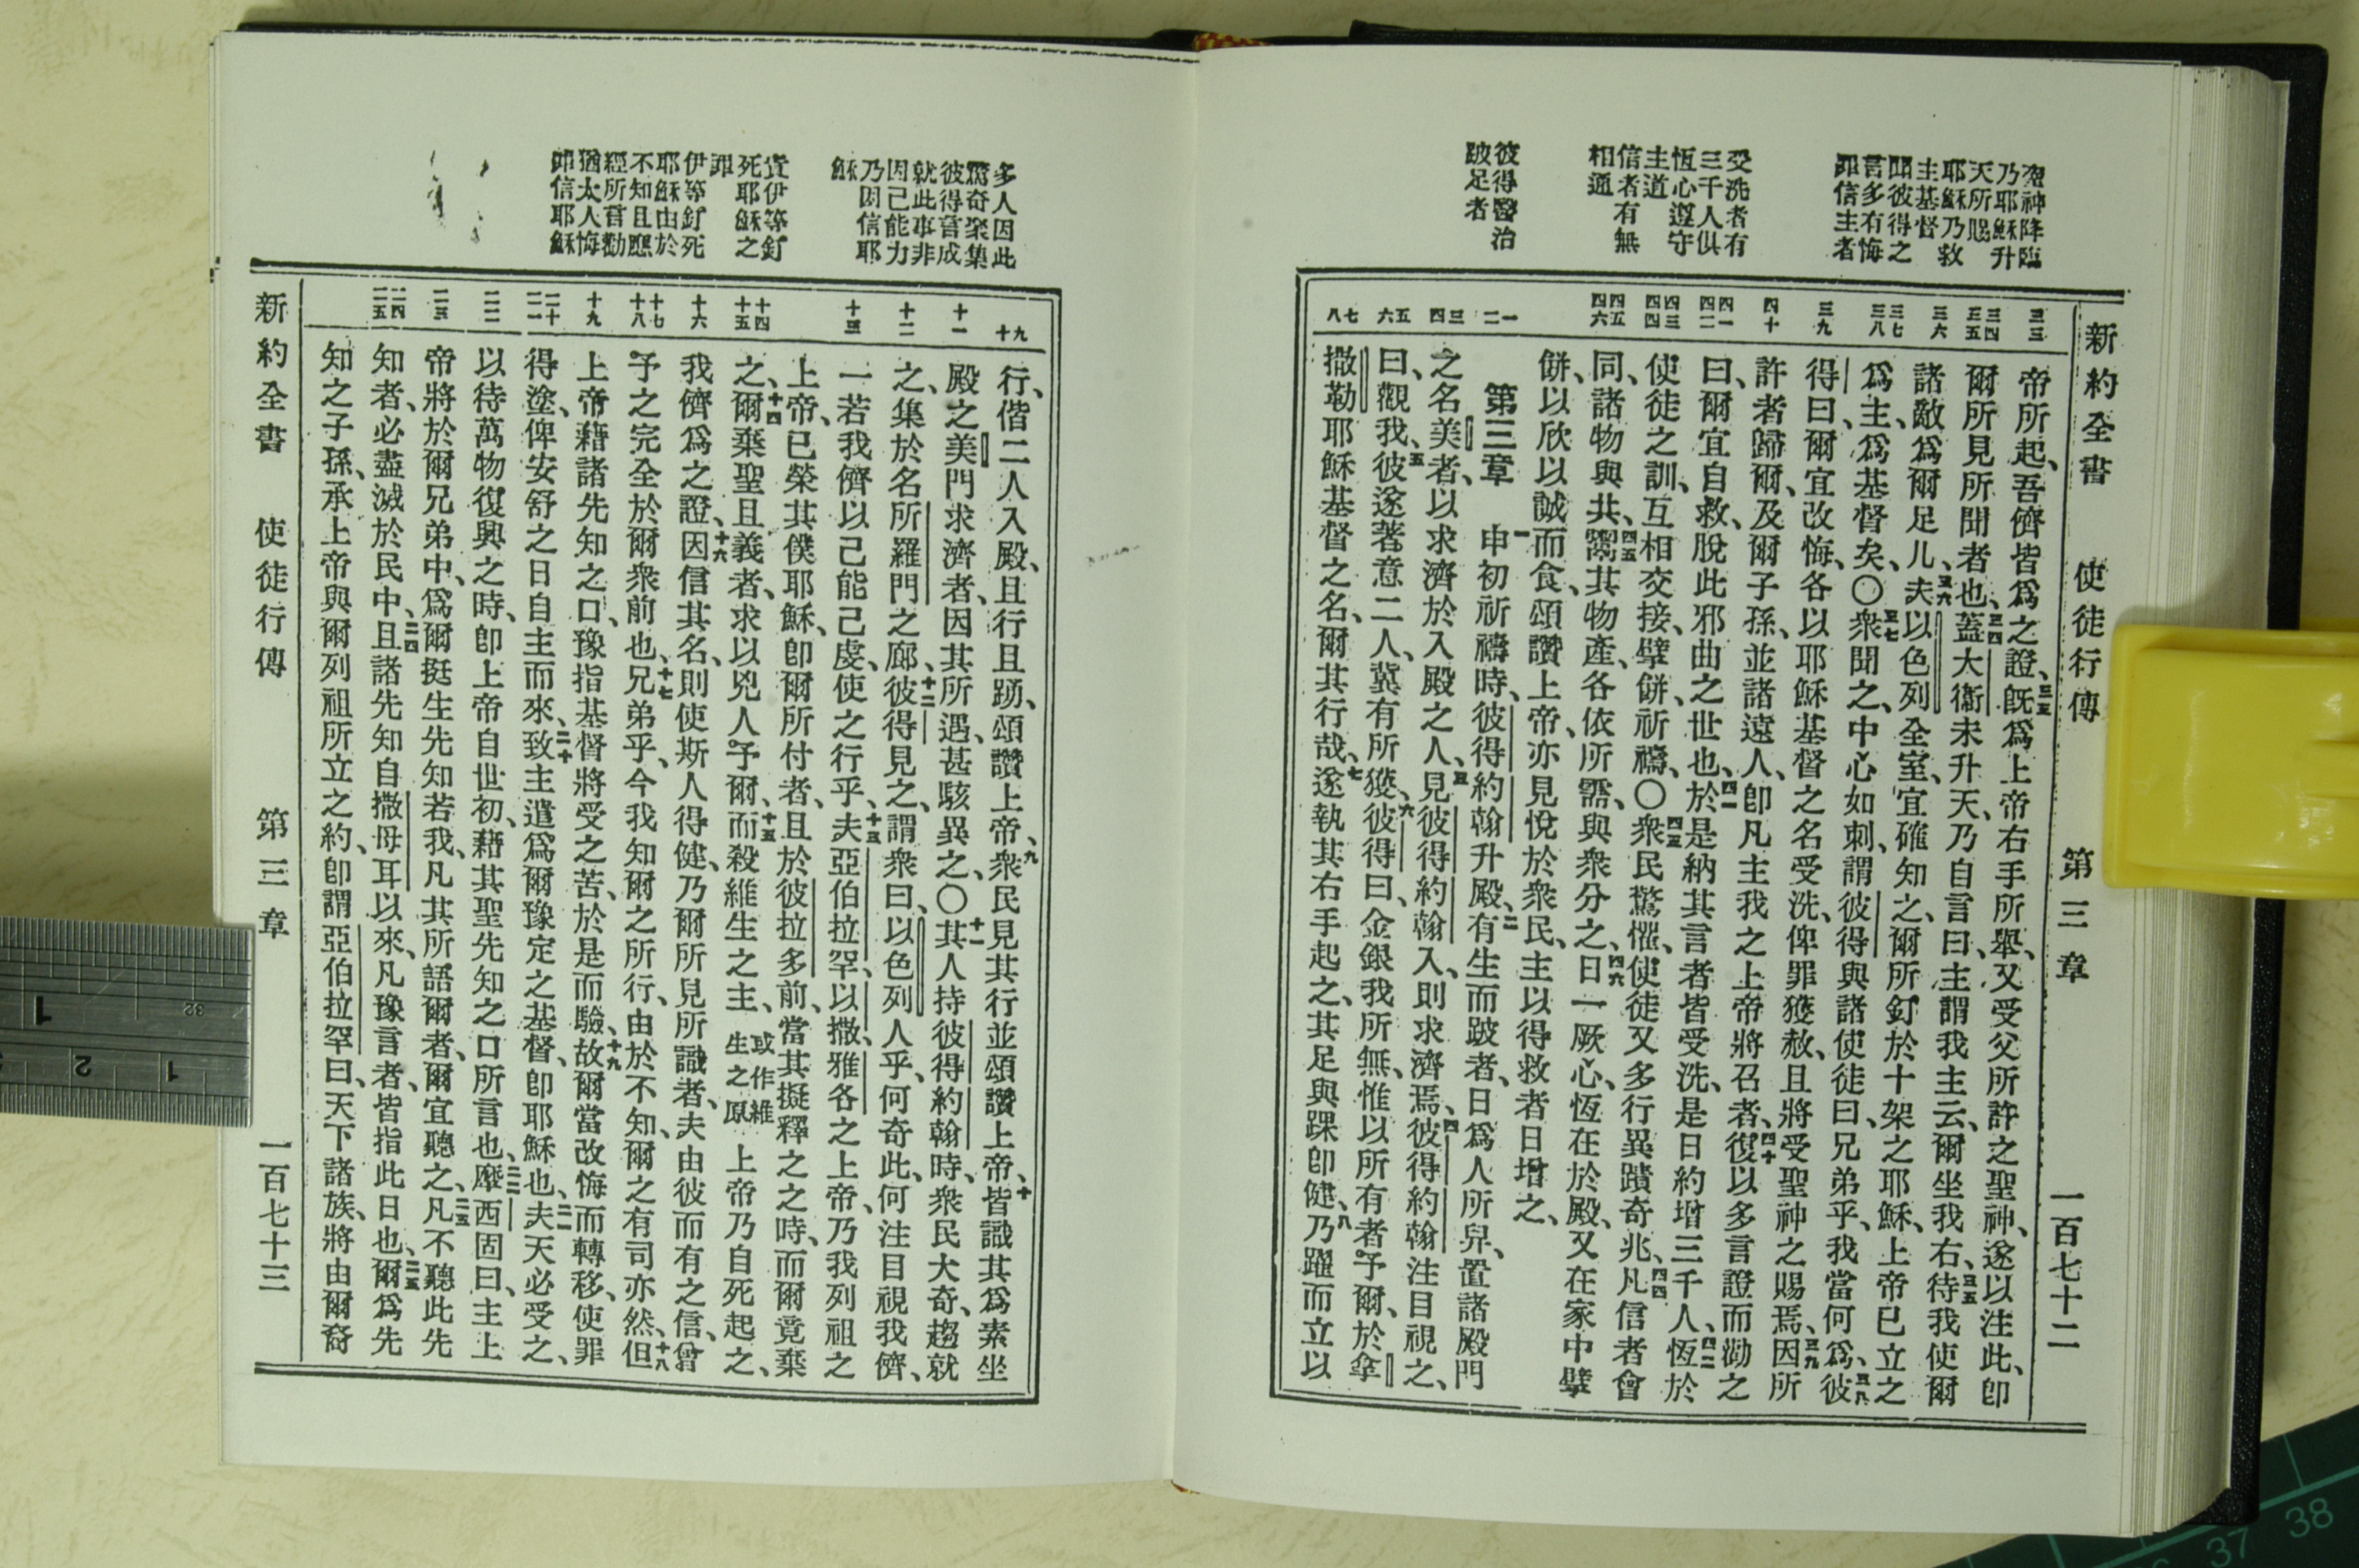 新約全書 使徒行傳 第三章 一百七十二
乃耶穌升
天所賜
耶穌乃救
主基督
聞彼得之
言多有悔
罪信主者
受洗者有
三千人俱
恆心遵守
主道
信者有無
相通
彼得醫治
跛足者
三三
三四 三五
三六
三七 三八
三九
四十
四一 四二
四三 四四
四五 四六
一 二
三 四
五 六
七 八
帝所起、吾儕皆爲之證、三三旣爲上帝右手所舉、又受父所許之聖神、遂以注此、卽
爾所見所聞者也、三四蓋大衞未升天、乃自言曰、主謂我主云、爾坐我右、三五待我使爾
諸敵爲爾足几、三六夫以色列全室、宜確知之、爾所釘於十架之耶穌、上帝已立之
爲主、爲基督矣、〇三七衆聞之、中心如刺、謂彼得與諸使徒曰、兄弟乎、我當何爲、三八彼
得曰、爾宜改悔、各以耶穌基督之名受洗、俾罪獲赦、且將受聖神之賜焉、三九因所
許者歸爾、及爾子孫、並諸遠人、卽凡主我之上帝將召者、四十復以多言證而勸之
曰、爾宜自救、脫此邪曲之世也、四一於是納其言者皆受洗、是日約增三千人、四二恆於
使徒之訓、互相交接、擘餅、祈禱、〇四三衆民驚懼、使徒又多行異蹟奇兆、四四凡信者會
同、諸物與共、四五鬻其物產、各依所需、與衆分之、四六日一厥心、恆在於殿、又在家中擘
餅、以欣以誠而食、頌讚上帝、亦見悅於衆民、主以得救者日增之、
第三章 一申初祈禱時、彼得約翰升殿、二有生而跛者、日爲人所舁、置諸殿門
之名美者、以求濟於入殿之人、三見彼得約翰入、則求濟焉、四彼得約翰注目視之、
曰、觀我、五彼遂著意二人、冀有所獲、六彼得曰、金銀我所無、惟以所有者予爾、於拿
撒勒耶穌基督之名、爾其行哉、七遂執其右手起之、其足與踝卽健、八乃躍而立以
多人因此
驚奇聚集
彼得言成
就此事非
因己能力
乃因信耶
穌
責伊等釘
死耶穌之
罪
伊等釘死
耶穌由於
不知且應
經所言勸
猶太人悔
罪信耶穌
九 十
十一
十二
十三
十四 十五
十六
十七 十八
十九
二十 二一
二二
二三
二四 二五
行、偕二人入殿、且行且踴、頌讚上帝、九衆民見其行並頌讚上帝、十皆識其爲素坐
殿之美門求濟者、因其所遇、甚駭異之、〇十一其人持彼得約翰時、衆民大奇、趨就
之、集於名所羅門之廊、十二彼得見之、謂衆曰、以色列人乎、何奇此、何注目視我儕、
一若我儕以己能己虔、使之行乎、十三夫亞伯拉罕、以撒、雅各之上帝、乃我列祖之
上帝、已榮其僕耶穌、卽爾所付者、且於彼拉多前、當其擬釋之之時、而爾竟棄
之、十四爾棄聖且義者、求以兇人予爾、十五而殺維生之主、或作維生之原 上帝乃自死起之、
我儕爲之證、十六因信其名、則使斯人得健、乃爾所見所識者、夫由彼而有之信、曾
予之完全於爾衆前也、十七兄弟乎、今我知爾之所行、由於不知、爾之有司亦然、十八但
上帝藉諸先知之口、豫指基督將受之苦、於是而驗、十九故爾當改悔而轉移、使罪
得塗、俾安舒之日自主而來、二十致主遣爲爾豫定之基督、卽耶穌也、二一夫天必受之、
以待萬物復興之時、卽上帝自世初、藉其聖先知之口所言也、二二摩西固曰、主上
帝將於爾兄弟中、爲爾挺生先知若我、凡其所語爾者、爾宜聽之、二三凡不聽此先
知者、必盡滅於民中、二四且諸先知自撒母耳以來、凡豫言者、皆指此日也、二五爾爲先
知之子孫、承上帝與爾列祖所立之約、卽謂亞伯拉罕曰、天下諸族、將由爾裔
新約全書 使徒行傳 第三章 一百七十三
32
1
2 1
37 38